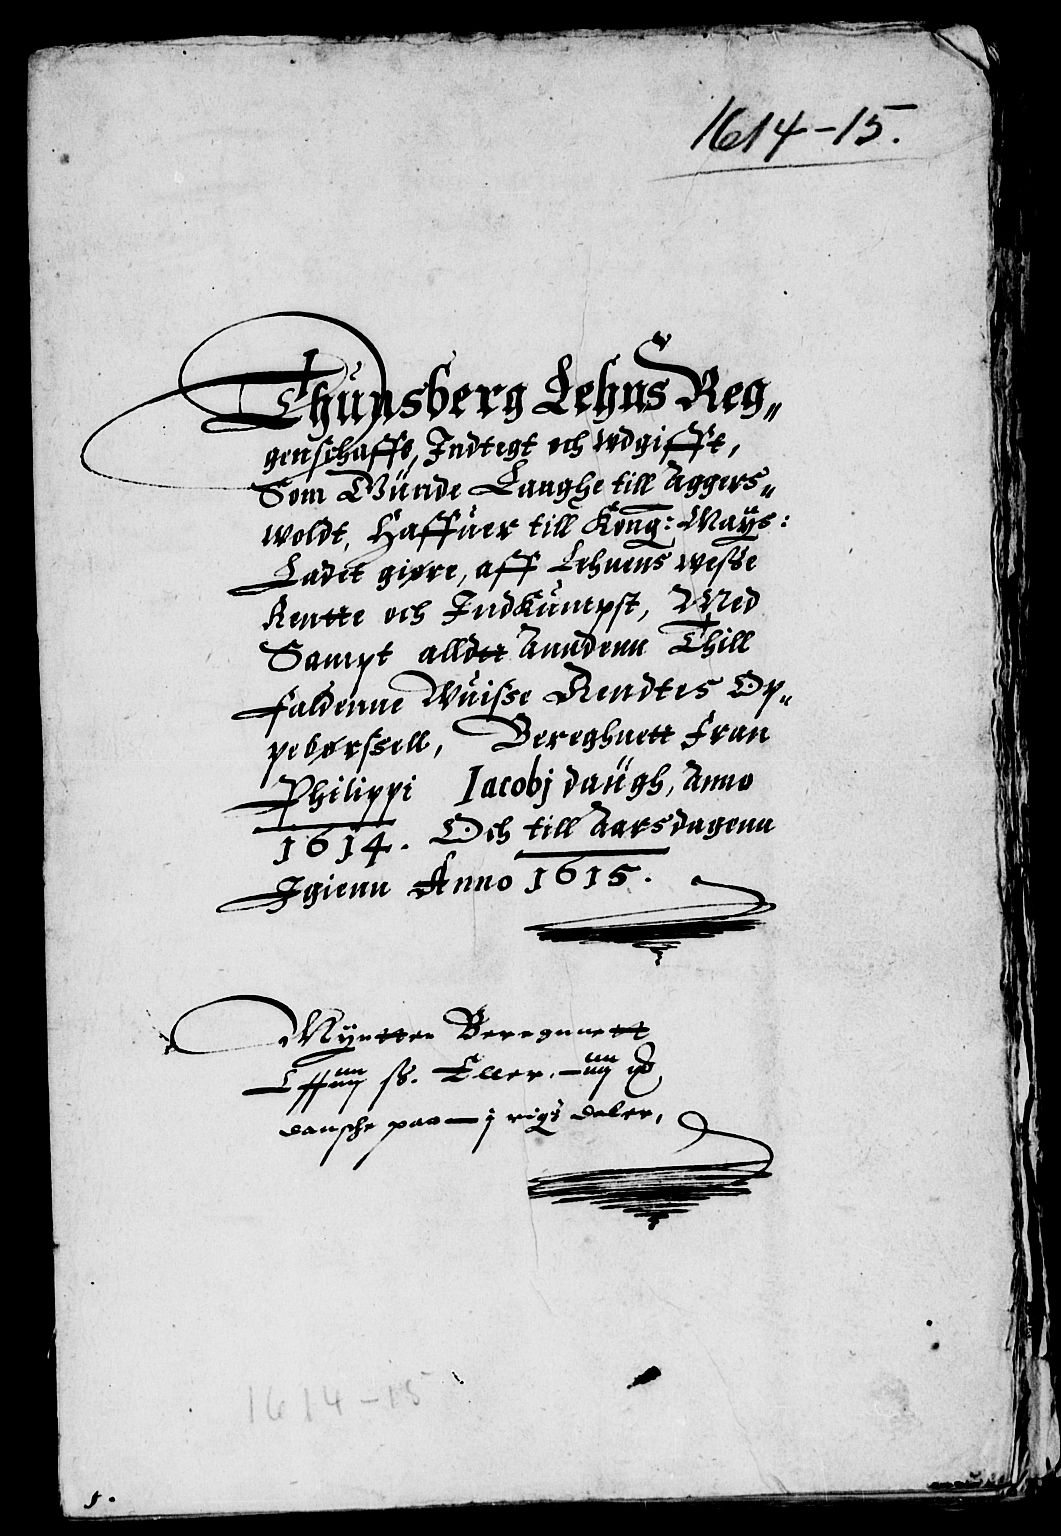 1614-15.
Thünsberg Lehns Reg„
genschaffs, Indtegt och wdgifft,
Som Günde Langhe till Aggers„
woldt, Haffüer till Kong: Mays:
Ladet giøre, aff Lehnens wesse
Rentte och Indkümpst, Med
Sampt alldtt Anndenn Thill
faldenne Wüisse Rendtes Op„
pebørssell, Bereghnett fran
Philippi Iacobj daügh, Anno
1614. Och till Aarsdagenn
Igienn Anno 1615.
Myntten Beregnnett
ß. Eller
dansche paa j rigs daler,
1614-15
1.